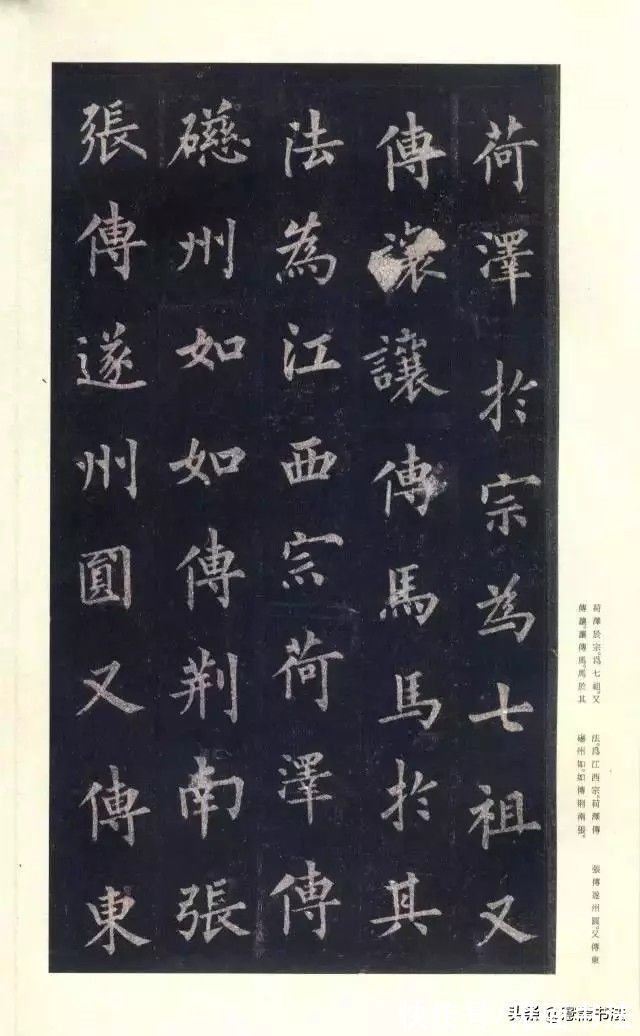 荷澤於宗為七祖又
傳讓讓傳馬馬於其
法為江西宗荷澤傳
礠州如如傳荆南張
張傳遂州圓又傳東
荷澤於宗。爲七祖。又
傳讓。讓傳馬。馬於其
法。爲江西宗。荷澤傳
礠州如。如傳荆南張。
張傳遂州圓。又傳東
头条
书法